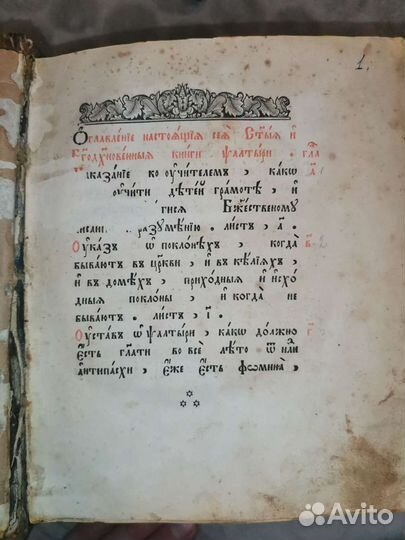 1.
Ѻглавленїе настоѧщїѧ сеѧ̀ Ст҃ыѧ и҆
Бг҃одх҃новенныѧ книги ѱалтыри . гла
казанїе ко ѹ҆чителемъ , какѡ а҃
ѹ҆чити дѣтей грамотѣ , и҆
Бж҃ественому
разꙋмѣнїю . листъ , а҃ .
Оу҆казъ ѡ҆ поклонѣхъ , когда̀ в҃
бываютъ въ цр҃кви , и҆ въ келїѧхъ ,
и҆ въ домѣхъ , приходныѧ и҆ исхо
дныѧ поклоны , и҆ когда̀ не
бываютъ . листъ , і҃ .
Оу҆ставъ ѡ҆ ѱалтыри , какѡ должно г҃
є҆сть гл҃ати во все лѣто ѿ нл҃и
а҆нтипасхи , є҆же є҆сть ѳомина ,
Avito